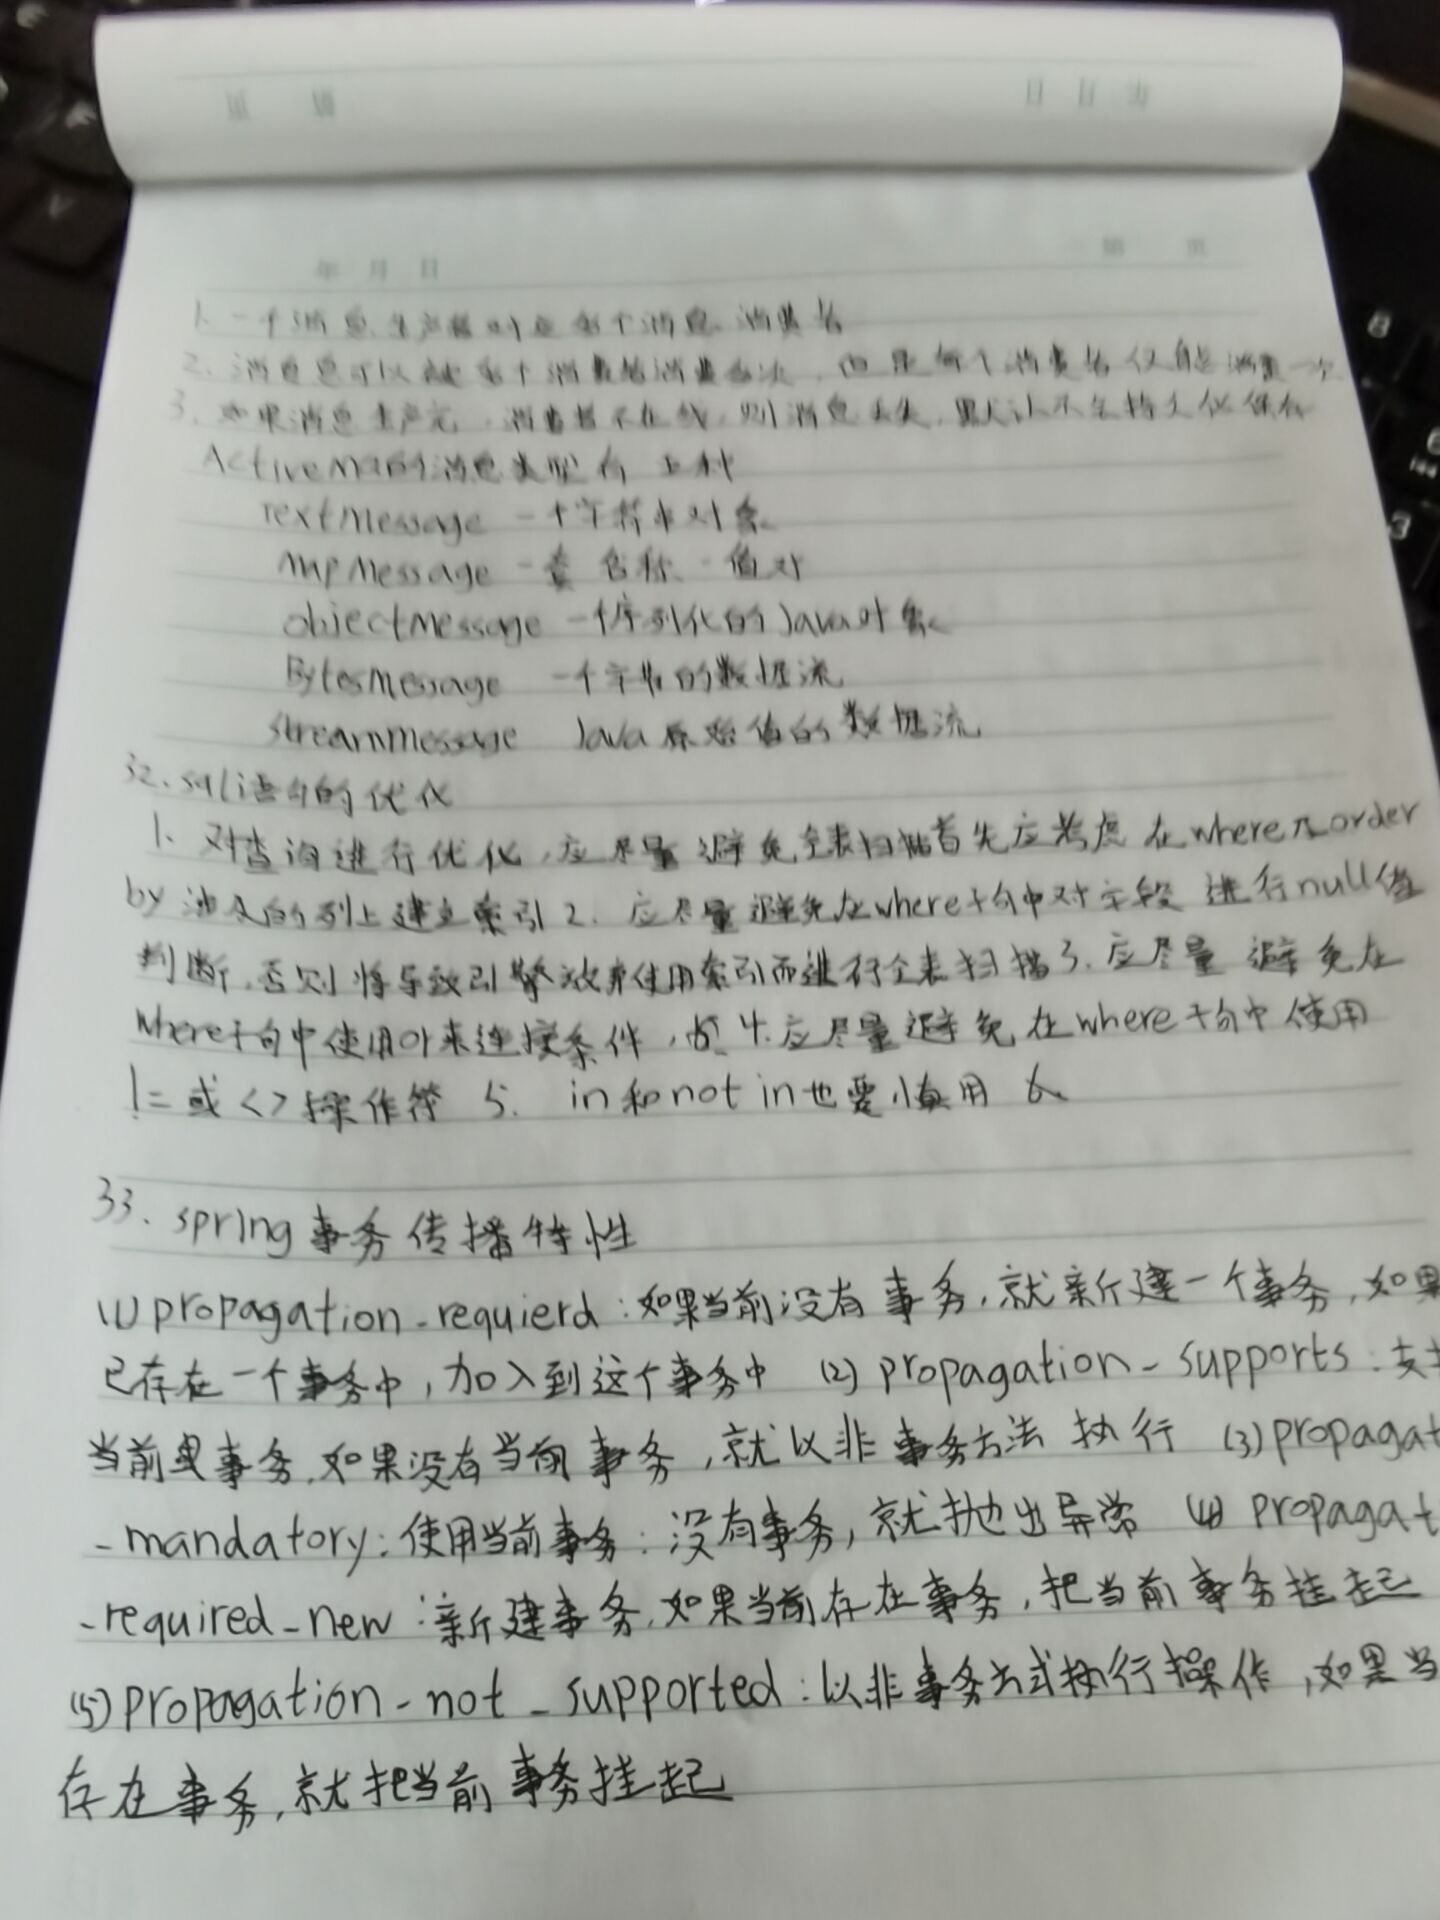 年 月 日
第 页
1. 一个消息生产者对应多个消息消费者
2. 消息可以被多个消费者消费多次,但是每个消费者仅能消费一次
3. 如果消息生产完,消费者不在线,则消息丢失,默认不会持久化保存
ActiveMQ的消息类型有五种
TextMessage 一个字符串对象
MapMessage 一套名称-值对
objectMessage 一个序列化的Java对象
BytesMessage 一个字节的数据流
StreamMessage Java原始值的数据流
32. sql语句的优化
1. 对查询进行优化,应尽量避免全表扫描首先应考虑在where及order
by涉及的列上建立索引 2. 应尽量避免在where子句中对字段进行null值
判断,否则将导致引擎放弃使用索引而进行全表扫描 3. 应尽量避免在
where子句中使用or来连接条件, 4. 应尽量避免在where子句中使用
!=或<>操作符 5. in和not in也要慎用 6.
33. spring事务传播特性
(1) propagation_requierd:如果当前没有事务,就新建一个事务,如果
已存在一个事务中,加入到这个事务中 (2) propagation_supports:支
当前事务,如果没有当前事务,就以非事务方法执行 (3) propagat
_mandatory:使用当前事务:没有事务,就抛出异常 (4) propagat
_required_new:新建事务,如果当前存在事务,把当前事务挂起
(5) propagation_not_supported:以非事务方式执行操作,如果当
存在事务,就把当前事务挂起